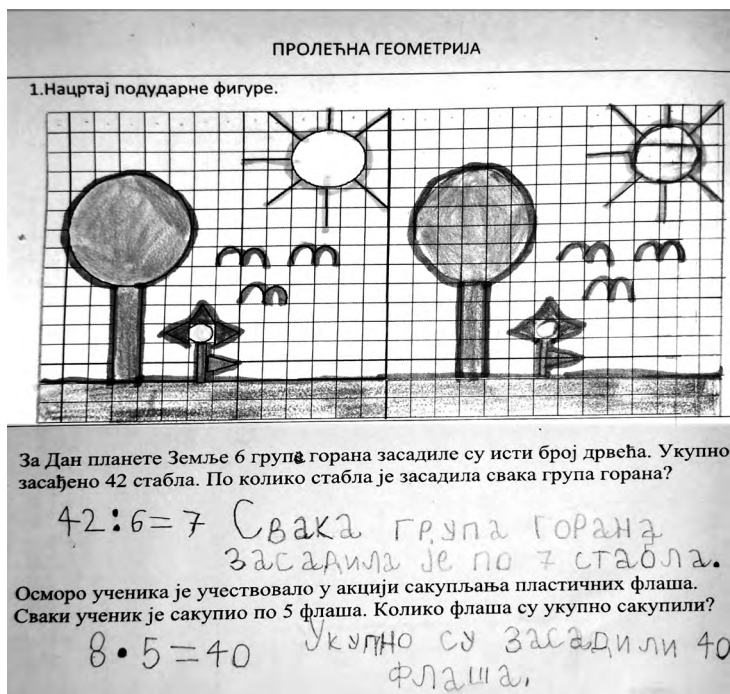 ПРОЛЕЋНА ГЕОМЕТРИЈА
1.Нацртај подударне фигуре.
За Дан планете Земље 6 група горана засадиле су исти број дрвећа. Укупно
засађено 42 стабла. По колико стабла је засадила свака група горана?
42:6=7 Свака група горана
засадила је по 7 стабла.
Осморо ученика је учествовало у акцији сакупљања пластичних флаша.
Сваки ученик је сакупио по 5 флаша. Колико флаша су укупно сакупили?
8•5=40 Укупно су засадили 40
флаша.